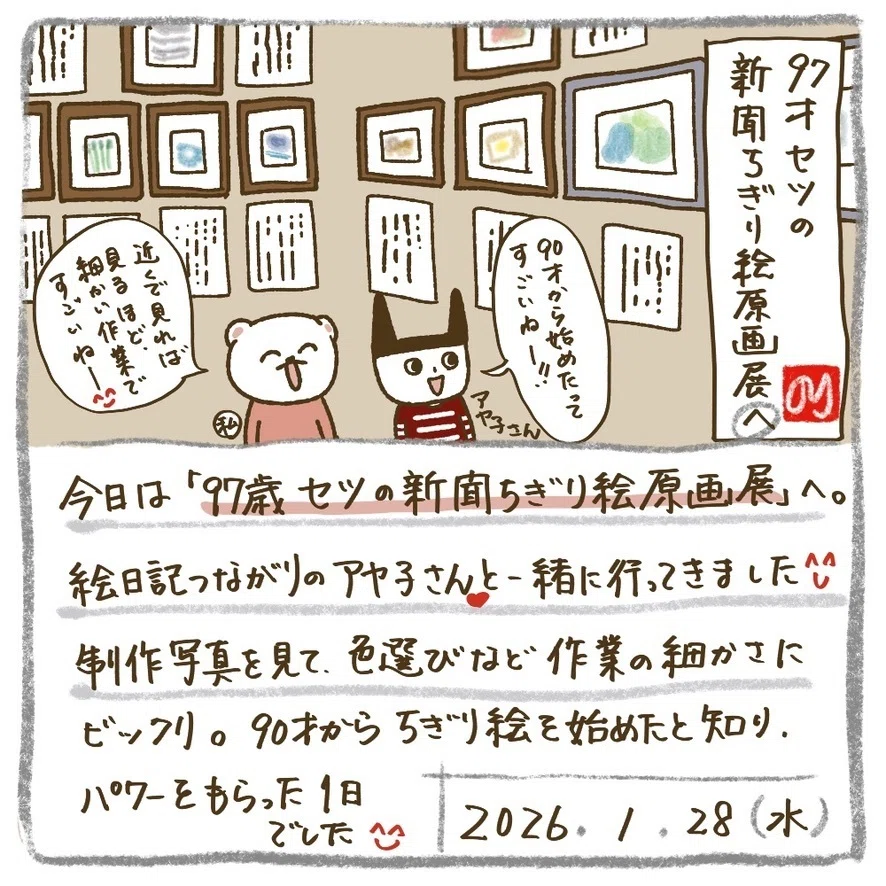 97才セツの
新聞ちぎり絵原画展へ
90才から始めたって
すごいねー!!
近くで見れば
見るほど、
細かい作業で
すごいねー
私
アヤ子さん
今日は「97歳セツの新聞ちぎり絵原画展」へ。
絵日記つながりのアヤ子さんと一緒に行ってきました
制作写真を見て、色選びなど作業の細かさに
ビックリ。90才からちぎり絵を始めたと知り、
パワーをもらった1日
でした
2026.1.28(水)